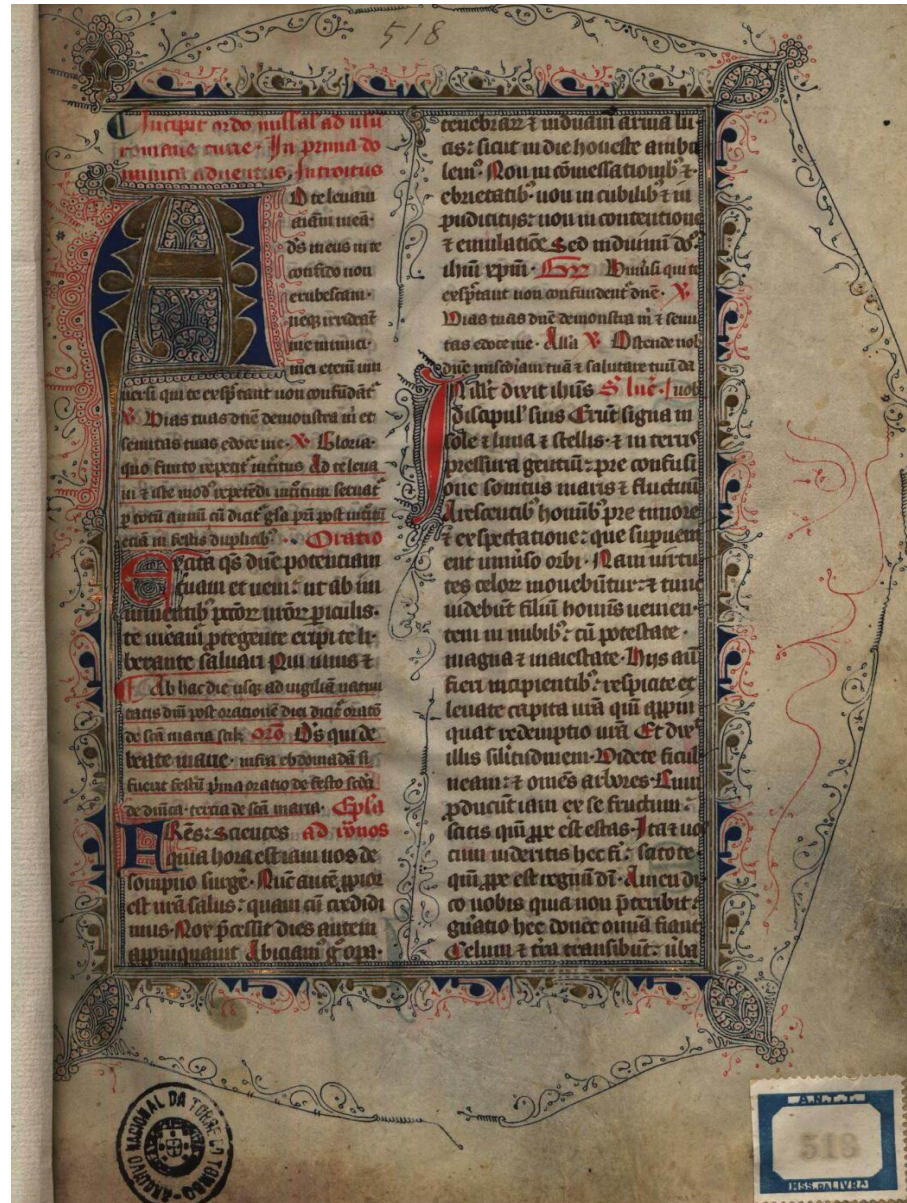 518
Incipit ordo missal ad usu
romane curie · In prima do
minica aduentus, Introitus
AD te leuaui
aiam meā ·
ds̄ meus in te
confido non
erubescam ·
neq; irrideāt
me inimici
mei etenim uni
uersi qui te exspectant non confūdāt᷑
V̶ Uias tuas dn̄e demonstra m̄ et
semitas tuas edoce me · V̶ Gloria ·
quo finito repetit᷑ introitus Ad te leua
ui ⁊ iste modꝰ repetēdi introitum seruat᷑
ꝑ totū annū cū dicit᷑ gl̄a pr̄i post introitū
etiā in festis duplicibꝰ · Oratio
Excita qs̄ dn̄e potentiam
tuam et ueni : ut ab im
minentibꝰ pctōꝝ nr̄oꝝ ꝑiculis ·
te meream᷑ ꝓtegente eripi te li
berante saluari Qui uiuis ⁊
Ab hac die usq; ad uigiliā natiui
tatis dn̄i post orationē diei dicit᷑ oratō
de scā maria scil; orō Ds̄ qui de
beate marie · infra ebdomadā si
fuerit festū p̄ma oratio de festo scd̄a
de dn̄ica · tercia de scā maria · Epl̄a
FRēs : Scientes ad rōnos
quia hora est iam nos de
sompno surge᷑ · Nūc autē ꝓpior
est nr̄a salus : quam cū credidi
mus · Nox p̄cessit dies autem
appinquauit Abiciam᷑ g̊ opa ·
tenebraꝝ ⁊ induam᷑ arma lu
cis : sicut in die honeste ambu
lemꝰ · Non in cōmessationibꝰ ⁊ ·
ebrietatibꝰ · non in cubilibꝰ ⁊ in
pudicitijs : non in contentione
⁊ emulatiōe Sed induimī do᷑
ihm̄ xpm̄ · Gr̄ Uniu᷑si qui te
exspectant non confundent᷑ dn̄e · V̶
Uias tuas dn̄e demonstra m̄ ⁊ semi
tas edoce me · All'a V̶ Ostende nob
dn̄e misc̄diam tuā ⁊ salutare tuū da
IN illo t᷑ dixit ihūs S luc̄ · nob
discipul' suis Erūt signa in
sole ⁊ luna ⁊ stellis · ⁊ in terris
pressura gentiū : pre confusi
one sonitus maris ⁊ fluctuū
Arescentibꝰ hoībꝰ pre timore
⁊ exspectatione : que supueni
ent uniu᷑so orbi · Nam uirtu
tes celoꝝ mouebūtur : ⁊ tunc
uidebūt filiū homīs uenien
tem in nubibꝰ : cū potestate ·
magna ⁊ maiestate · Hijs aūt
fieri incipientibꝰ : respicite et
leuate capita ur̄a qm̄ appin
quat redemptio ur̄a Et dix᷑
illis silitudinem · Uidete ficul
neam : ⁊ omēs arbores · Cum
ꝓducūt iam ex se fructum :
scitis qm̄ ꝓpe est estas · Ita ⁊ uos
cum uideritis hec fi᷑ : scitote ·
qm̄ ꝓpe est regnū di᷑ · Amen di
co uobis quia non p̄teribit :
gn̄atio hec donec omīa fiant
Celum ⁊ tr̄a transibūt : u᷑ba
ARQUIVO NACIONAL DA TORRE DO TOMBO
A.N.T.T.
518
MSS. DA LIVRA